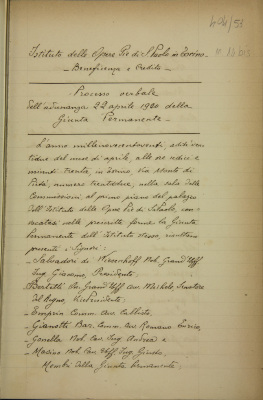 Istituto delle Opere Pie di S. Paolo in Torino
- Beneficenza e Credito -
Processo verbale
dell'adunanza 22 aprile 1920 della
Giunta Permanente -
L'anno millenovecentoventi, addì ven
tidue del mese di aprile, alle ore sedici e
minuti trenta, in Torino, Via Monte di
Pietà, numero trentadue, nella sala delle
Commissioni al primo piano del palazzo
dell'Istituto delle Opere Pie di S. Paolo, con-
vocatasi nelle prescritte forme la Giunta
Permanente dell'Istituto stesso, risultano
presenti i Signori:
- Salvadori di Wiesenhoff Nob. Grand'Uff.
Ing. Giacomo, Presidente.
- Bertetti Avv. Grand'Uff. Michele, Senatore
del Regno, Vice Presidente.
- Emprin Comm. Avv. Callisto,
- Gianotti Bar. Comm. Avv. Romano Enrico,
- Gonella Nob. Cav. Ing. Andrea e
- Marino Nob. Cav. Uff. Ing.
Membri della Giunta Permanente.